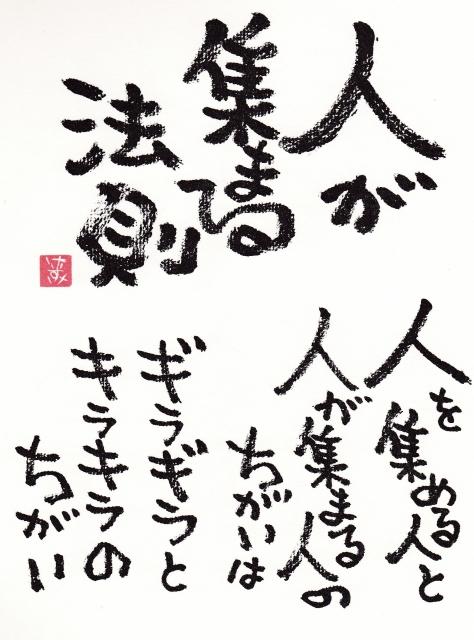 人が
集まる
法則
人を集める人と
人が集まる人の
ちがいは
ギラギラと
キラキラの
ちがい